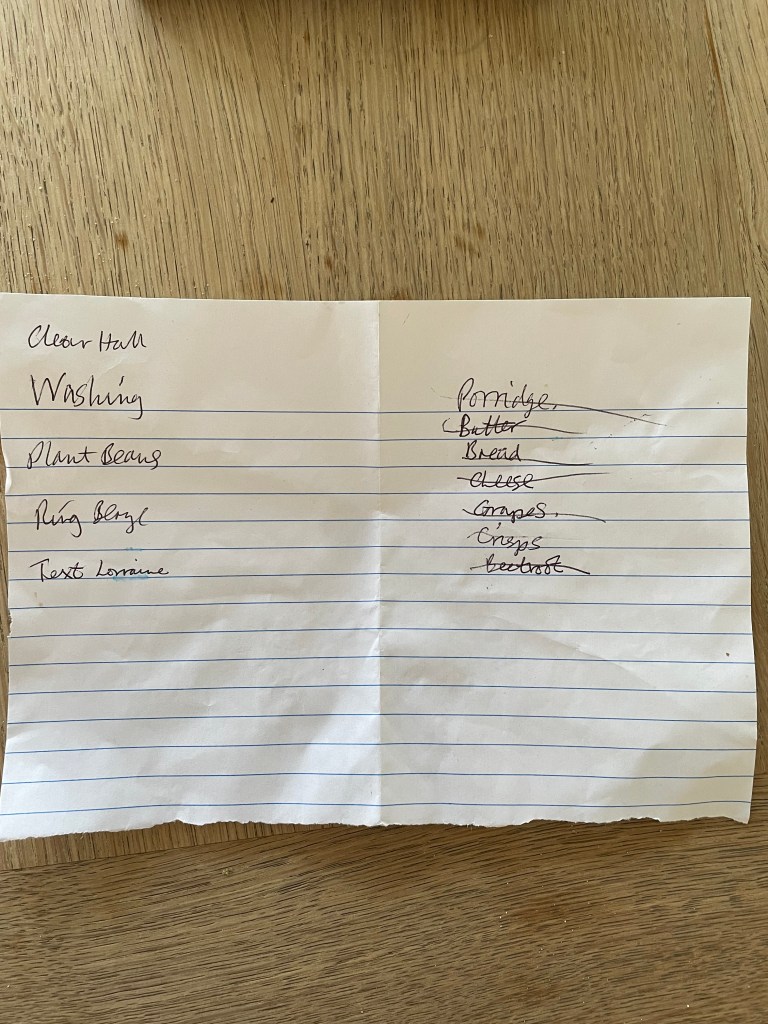 Clear Hall
Washing
Plant Beans
Ring Beryl
Text Lorraine
Porridge.
Butter
Bread
Cheese
Grapes.
Crisps
Beetroot